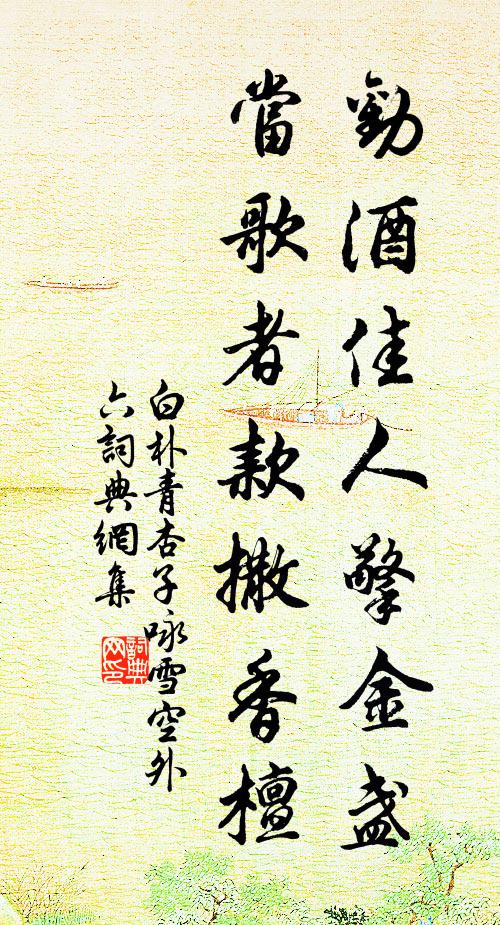 勸酒佳人擎金盞
當歌者款撒香檀
白朴青杏子咏雪空外
六詞典網集
詞典
网印